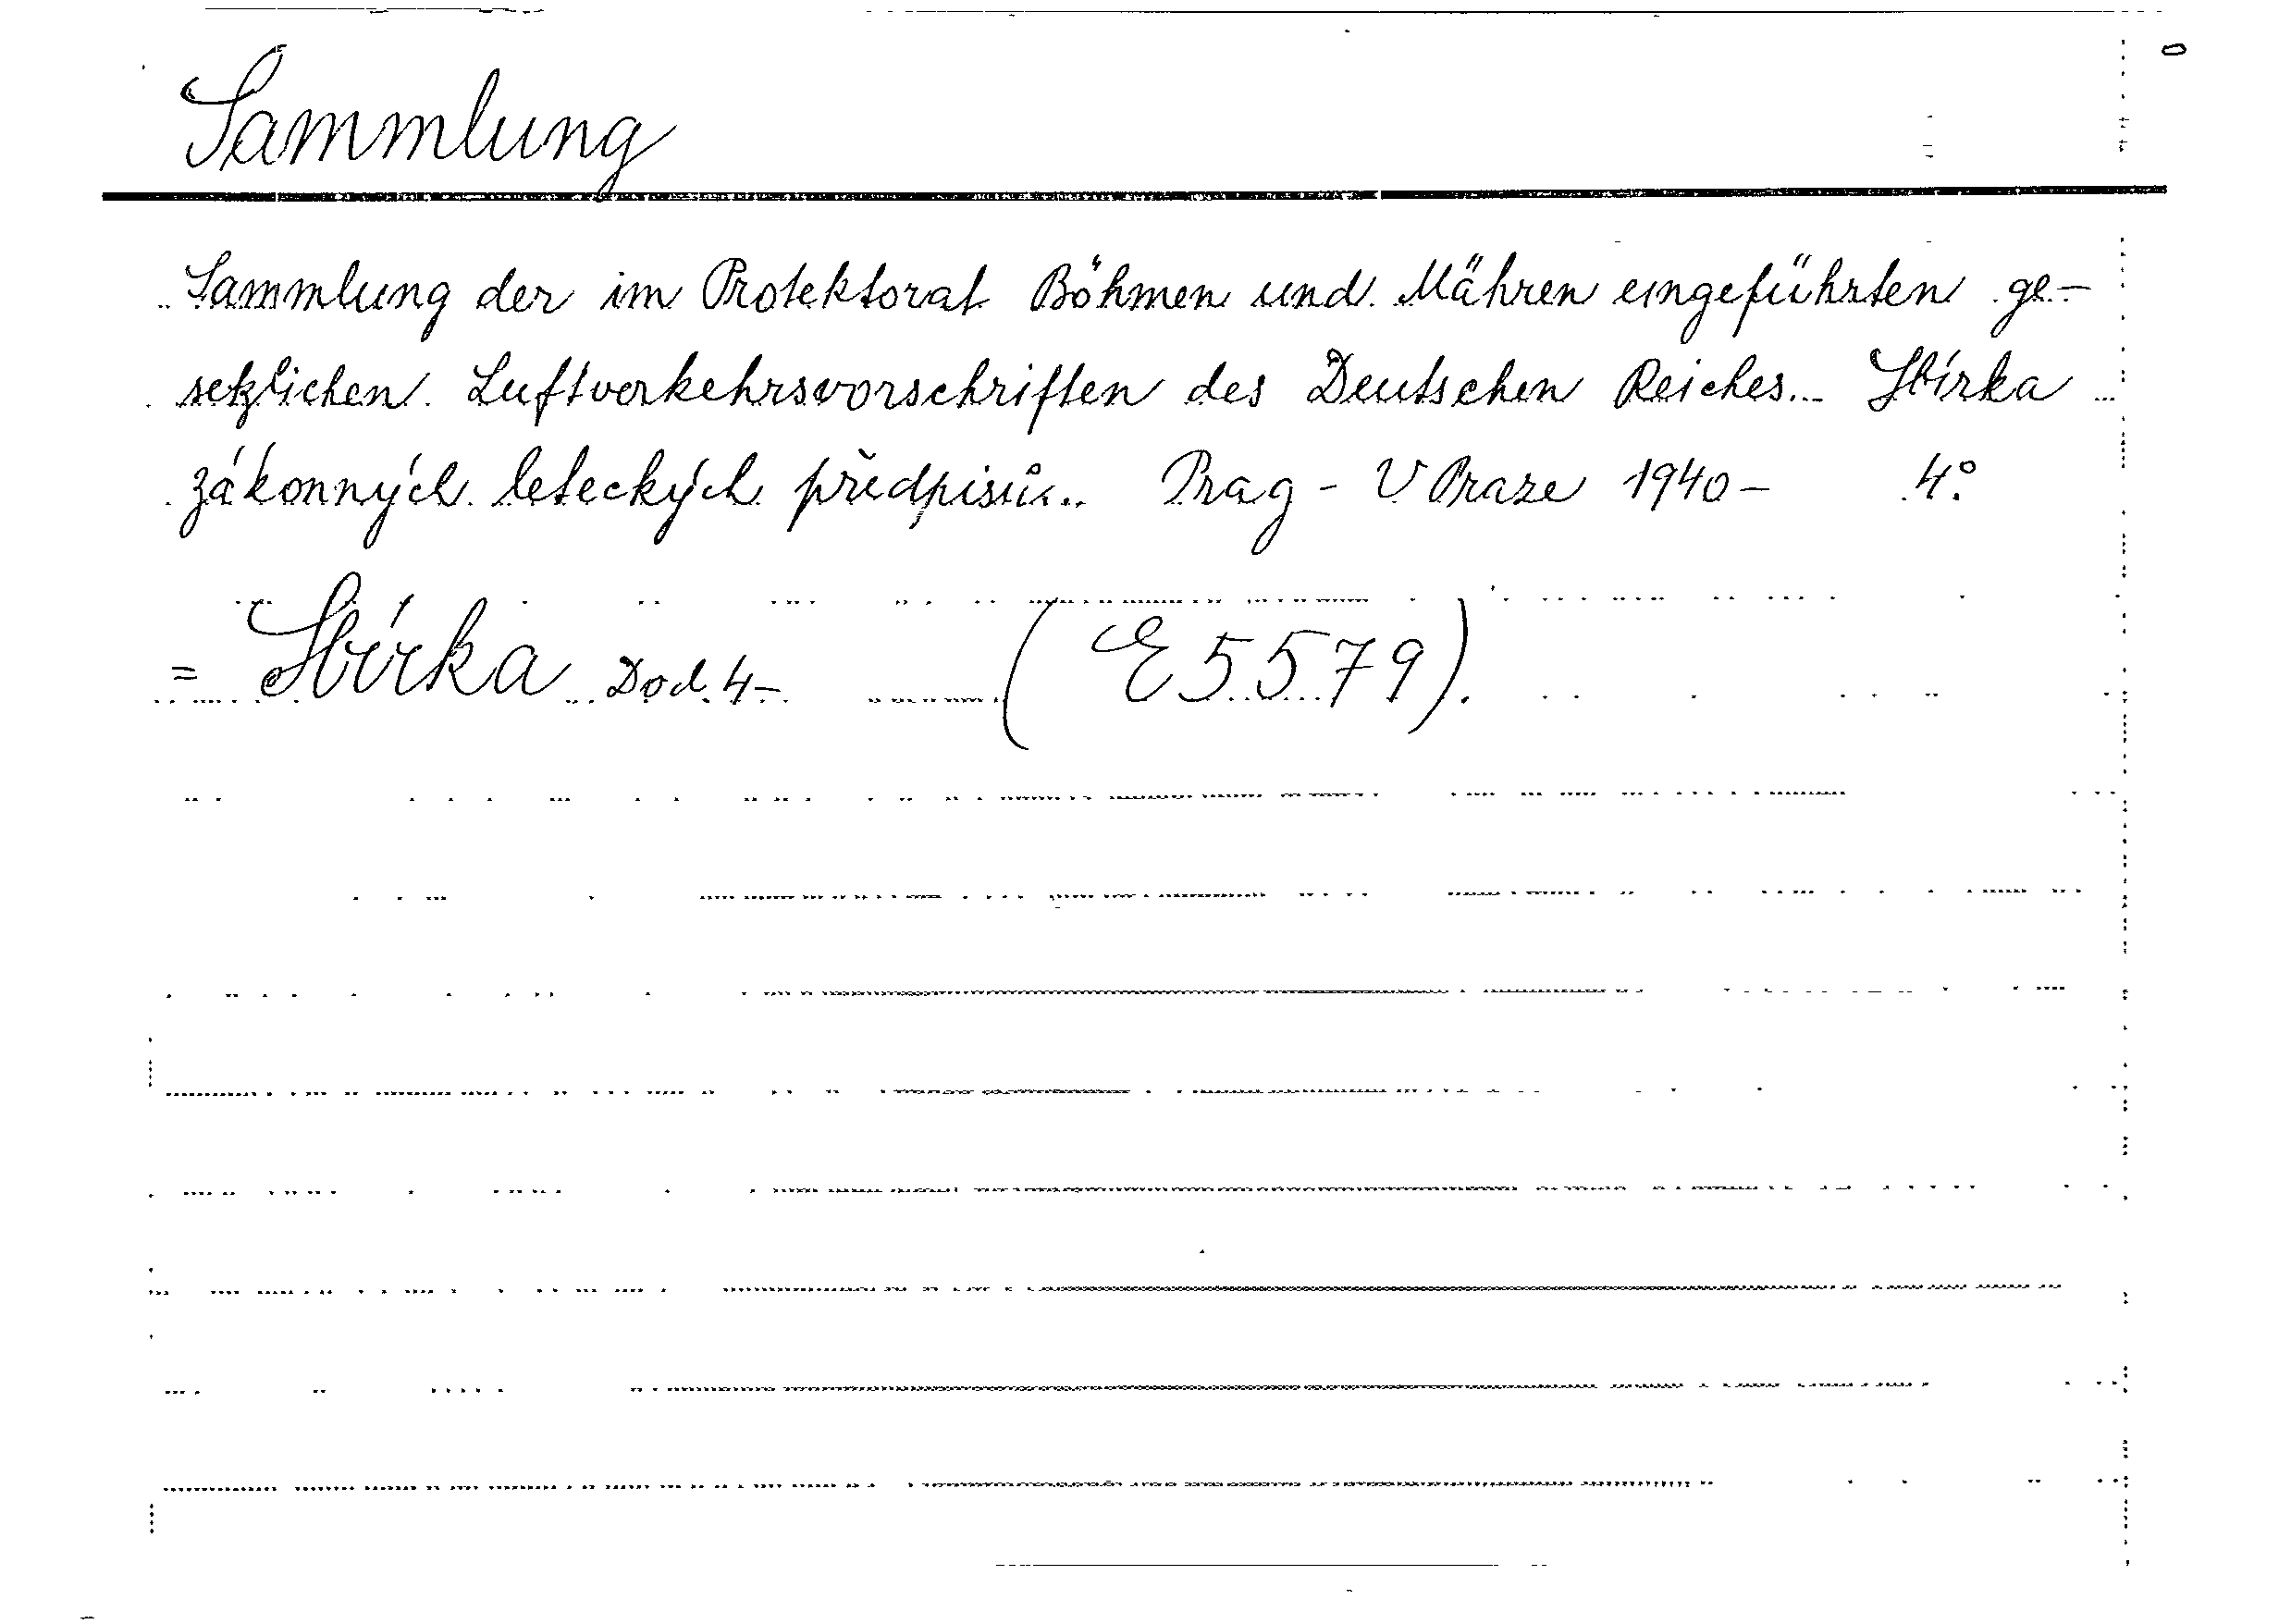 Sammlung
Sammlung der im Protektorat Böhmen und Mähren eingeführten ge-
setzlichen Luftverkehrsvorschriften des Deutschen Reiches... Sbírka
zákonných leteckých předpisů... Prag - V Praze 1940 - 4°.
= Sbírka Dod. 4- (E 5579).